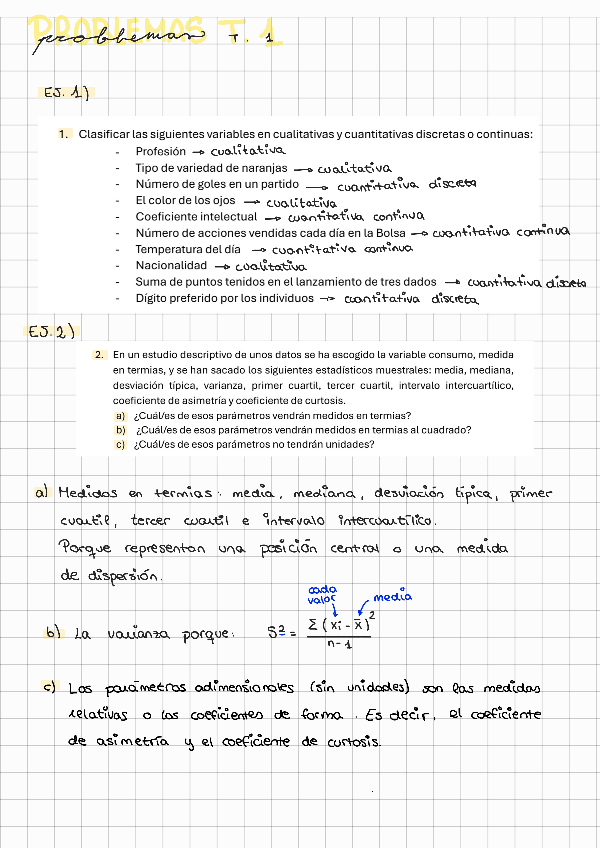 PROBLEMAS T. 1
problemas T. 1
EJ. 1)
1. Clasificar las siguientes variables en cualitativas y cuantitativas discretas o continuas:
- Profesión → cualitativa
- Tipo de variedad de naranjas → cualitativa
- Número de goles en un partido → cuantitativa discreta
- El color de los ojos → cualitativa
- Coeficiente intelectual → cuantitativa continua
- Número de acciones vendidas cada día en la Bolsa → cuantitativa continua
- Temperatura del día → cuantitativa continua
- Nacionalidad → cualitativa
- Suma de puntos tenidos en el lanzamiento de tres dados → cuantitativa discreta
- Dígito preferido por los individuos → cuantitativa discreta
EJ. 2)
2. En un estudio descriptivo de unos datos se ha escogido la variable consumo, medida
en termias, y se han sacado los siguientes estadísticos muestrales: media, mediana,
desviación típica, varianza, primer cuartil, tercer cuartil, intervalo intercuartílico,
coeficiente de asimetría y coeficiente de curtosis.
a) ¿Cuál/es de esos parámetros vendrán medidos en termias?
b) ¿Cuál/es de esos parámetros vendrán medidos en termias al cuadrado?
c) ¿Cuál/es de esos parámetros no tendrán unidades?
a) Medidos en termias: media, mediana, desviación típica, primer
cuartil, tercer cuartil e intervalo intercuartílico.
Porque representan una posición central o una medida
de dispersión.
cada valor media
b) La varianza porque: S² = Σ (xi - x̄)² / n-1
c) Los parámetros adimensionales (sin unidades) son las medidas
relativas o los coeficientes de forma. Es decir, el coeficiente
de asimetría y el coeficiente de curtosis.